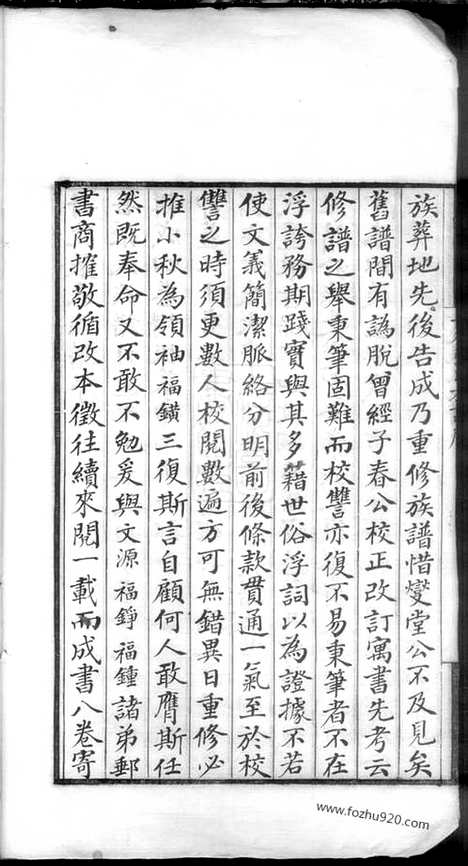 族葬地先後告成乃重修族譜惜燮堂公不及見矣
舊譜間有譌脫曾經子春公校正改訂寓書先考云
修譜之舉秉筆固難而校讐亦復不易秉筆者不在
浮誇務期踐實與其多藉世俗浮詞以為證據不若
使文義簡潔脈絡分明前後條款貫通一氣至於校
讐之時須更數人校閱數遍方可無錯異日重修必
推小秋為領袖福鐄三復斯言自顧何人敢膺斯任
然既奉命又不敢不勉爰與文源福錚福鍾諸弟郵
書商搉敬循改本徵往續來閱一載而成書八卷寄
www.fozhu920.com